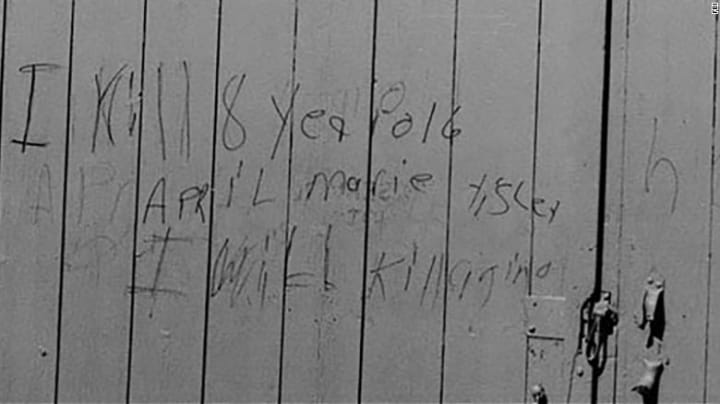 I Kill 8 Year old
APRiL marie tisley
I WiLL Kill agin
FBI